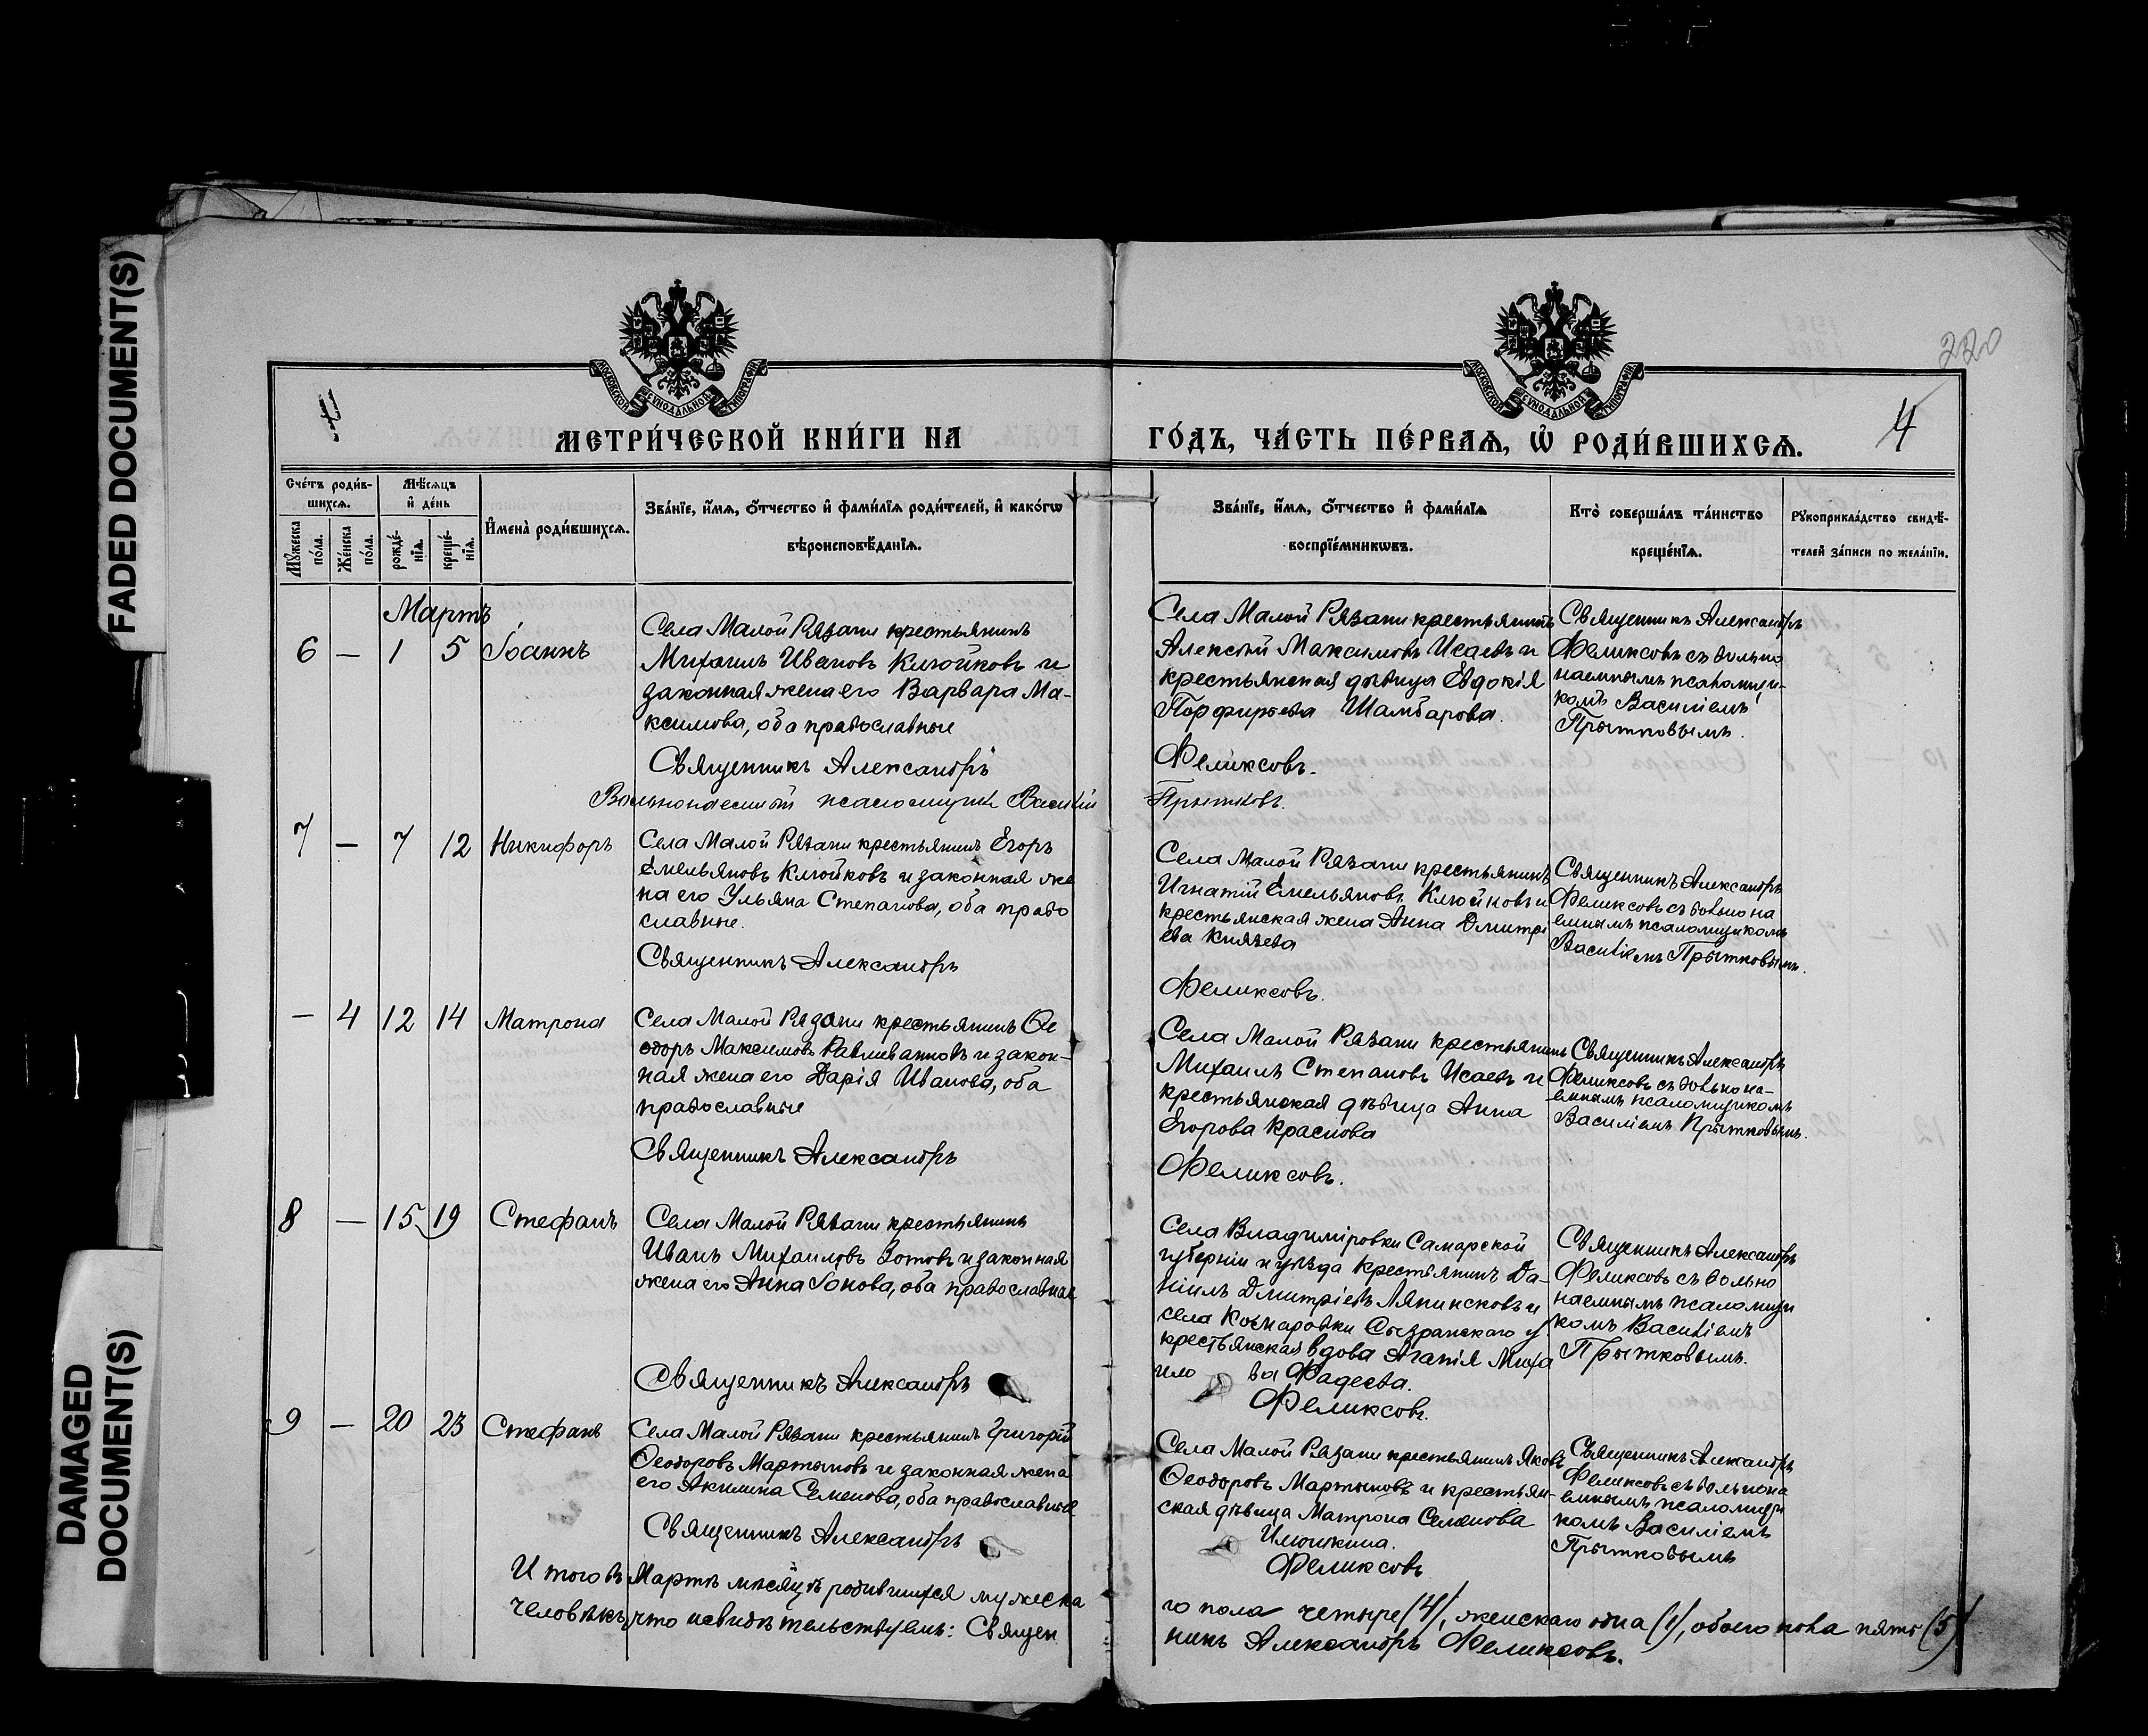 FADED DOCUMENT(S)
DAMAGED
DOCUMENT(S)
220
4
МОСКОВСКОЙ СѴНОДАЛЬНОЙ ТИПОГРАФІИ
МОСКОВСКОЙ СѴНОДАЛЬНОЙ ТИПОГРАФІИ
МЕТРИ́ЧЕСКОЙ КНИ́ГИ НА ГО́ДЪ, ЧА́СТЬ ПЕ́РВАѦ, Ѡ҆ РОДИ́ВШИХСѦ.
Сче́тъ роди́в-
шихсѧ.
Мꙋ́жеска по́ла.
Же́нска по́ла.
Мѣ́сѧцъ
и҆ де́нь
рожде́-
нїѧ.
креще́-
нїѧ.
И҆мена̀ роди́вшихсѧ.
Зва́нїе, и҆́мѧ, о҆́тчество и҆ фами́лїѧ роди́телей, и҆ како́гѡ
вѣроисповѣ́данїѧ.
Зва́нїе, и҆́мѧ, о҆́тчество и҆ фами́лїѧ
воспрїе́мникѡвъ.
Кто̀ соверша́лъ та́инство
креще́нїѧ.
Рꙋкоприкла́дство свидѣ́-
телей за́писи по жела́нїю.
Мартъ
6 — 1 5 Іоаннъ
Села Малой Рязани крестьянинъ
Михаилъ Ивановъ Клюйковъ и
законная жена его Варвара Ма-
ксимова, оба православные
Священникъ Александръ
Вольнонаемный псаломщикъ Василій
Села Малой Рязани крестьянинъ
Алексѣй Максимовъ Исаевъ и
крестьянская дѣвица Евдокія
Порфирьева Шамбарова.
Феликсовъ.
Прытковъ.
Священникъ Александръ
Феликсовъ съ вольно
наемнымъ псаломщи-
комъ Василіемъ
Прытковымъ.
7 — 7 12 Никифоръ
Села Малой Рязани крестьянинъ Егоръ
Емельяновъ Клюйковъ и законная же
на его Ульяна Степанова, оба право
славные.
Священникъ Александръ
Села Малой Рязани крестьянинъ
Игнатій Емельяновъ Клюйковъ и
крестьянская жена Анна Дмитрі
ева Князева
Феликсовъ.
Священникъ Александръ
Феликсовъ съ вольнона
емнымъ псаломщикомъ
Василіемъ Прытковымъ.
— 4 12 14 Матрона
Села Малой Рязани крестьянинъ Ѳе
одоръ Максимовъ и закон-
ная жена его Дарія Иванова, оба
православные
Священникъ Александръ
Села Малой Рязани крестьянинъ
Михаилъ Степановъ Исаевъ и
крестьянская дѣвица Анна
Егорова Краснова
Феликсовъ.
Священникъ Александръ
Феликсовъ съ вольнона-
емнымъ псаломщикомъ
Василіемъ Прытковымъ.
8 — 15 19 Стефанъ
Села Малой Рязани крестьянинъ
Иванъ Михаиловъ Зотовъ и законная
жена его Анна Іонова, оба православные
Священникъ Александръ
Села Владиміровки Самарской
губерніи и уѣзда крестьянинъ Да-
ніилъ Дмитріевъ и
села Сызранскаго у.
крестьянская вдова Агапія Миха
илова Фадеева.
Феликсовъ.
Священникъ Александръ
Феликсовъ съ вольно
наемнымъ псаломщи
комъ Василіемъ
Прытковымъ.
9 — 20 23 Стефанъ
Села Малой Рязани крестьянинъ Григорій
Ѳеодоровъ Мартыновъ и законная жена
его Акилина Семенова, оба православные
Священникъ Александръ
Села Малой Рязани крестьянинъ Яковъ
Ѳеодоровъ Мартыновъ и крестьян-
ская дѣвица Матрона Семенова
Илюшкина.
Феликсовъ
Священникъ Александръ
Феликсовъ съ вольнона
емнымъ псаломщи
комъ Василіемъ
Прытковымъ
Итого въ Мартѣ мѣсяцѣ родившихся мужеска го пола четыре (4), женскаго одна (1), обоего пола пять (5)
человѣкъ, что свидѣтельствуемъ: Священ никъ Александръ Феликсовъ.